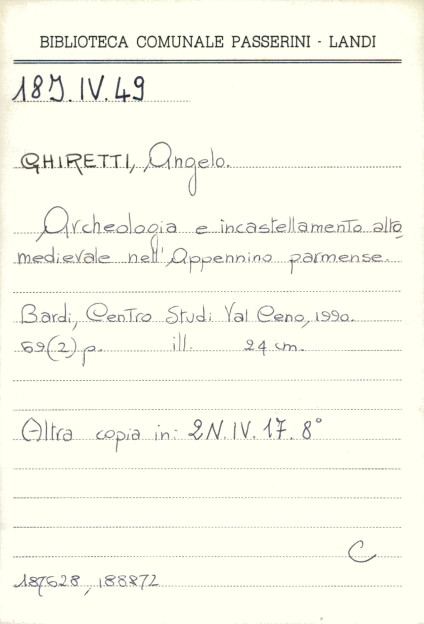 BIBLIOTECA COMUNALE PASSERINI - LANDI
18J.IV.49
GHIRETTI, Angelo.
Archeologia e incastellamento alto
medievale nell'Appennino parmense.
Bardi, Centro Studi Val Ceno, 1990.
69(2) p. ill. 24 cm.
Altra copia in: 2N.IV.17.8°
C
187628, 188872